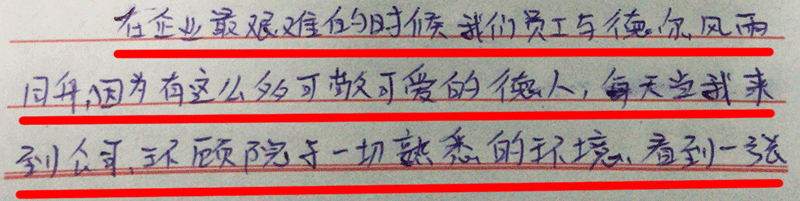 在企业最艰难的时候我们员工与德尔风雨
同舟,因为有这么多可敬可爱的德人,每天当我来
到公司,环顾院子一切熟悉的环境,看到一张